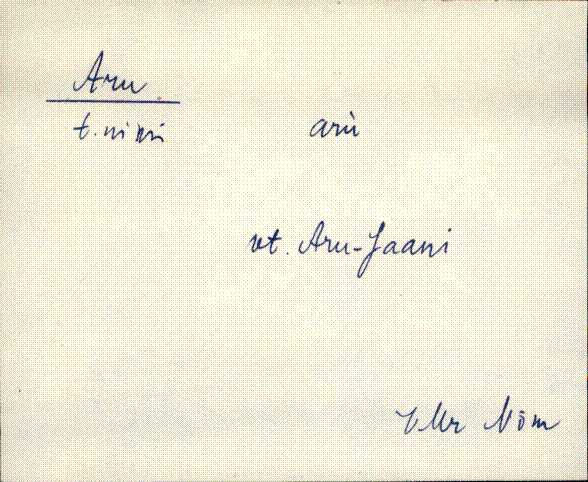 Aru
t. nimi arù
vt. Aru-Jaani
VMr Nõm